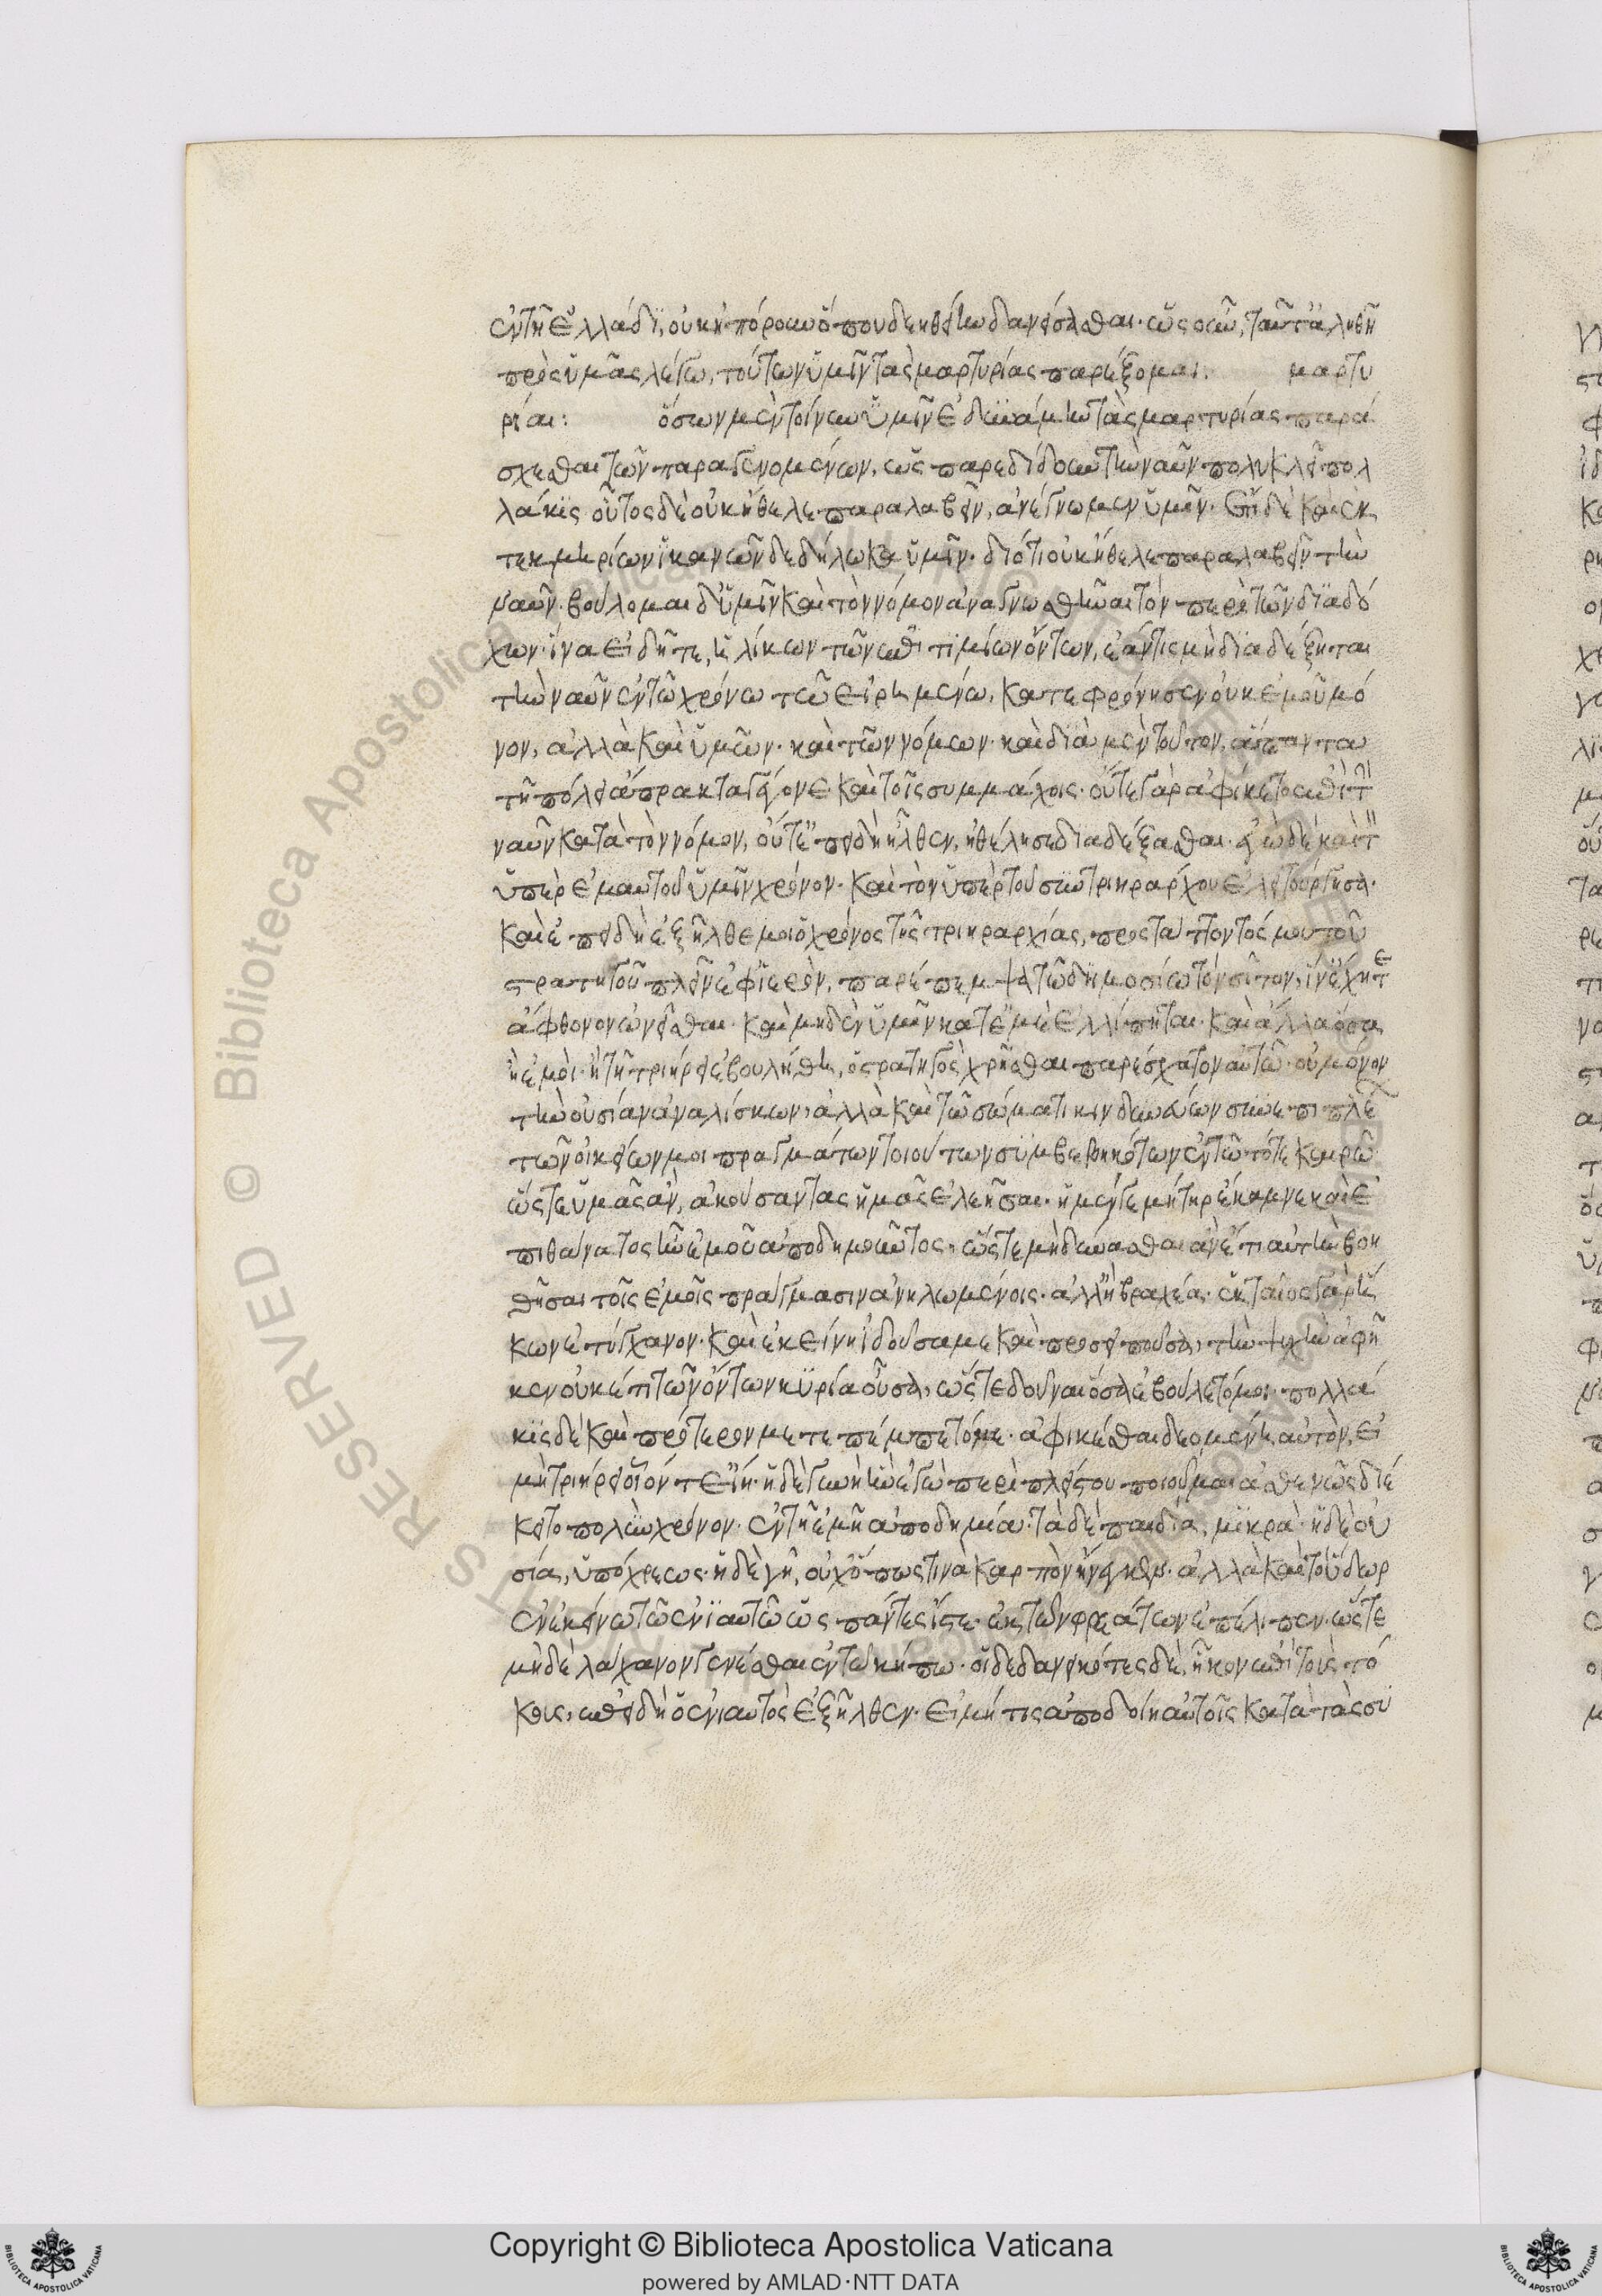 ἐν τῇ Ἑλλάδι, οὐκ ἠπόρουν ὅπου δεηθείην δανείσασθαι. ὡς οὖν ταῦτ' ἀληθῆ
πρὸς ὑμᾶς λέγω, τούτων ὑμῖν τὰς μαρτυρίας παρέξομαι. μαρτυ
ρίαι: ὅσων μὲν τοίνυν ὑμῖν ἐδυνάμην τὰς μαρτυρίας παρά
σχεσθαι τῶν παραγενομένων, ὡς παρεδίδουν τὴν ναῦν πολυκλεῖ πολ
λάκις οὗτος δὲ οὐκ ἤθελε παραλαβεῖν, ἀνέγνωμεν ὑμῖν. ἔτι δὲ καὶ ἐκ
τεκμηρίων ἱκανῶν δεδήλωκα ὑμῖν. διότι οὐκ ἤθελε παραλαβεῖν τὴν
ναῦν. βούλομαι δ' ὑμῖν καὶ τὸν νόμον ἀναγνωσθῆναι τὸν περὶ τῶν διαδό
χων. ἵνα εἰδῆτε, ἡλίκων τῶν ἐπιτιμίων ὄντων, ἐάν τις μὴ διαδέξηται
τὴν ναῦν ἐν τῷ χρόνῳ τῷ εἰρημένῳ, κατεφρόνησεν οὐκ ἐμοῦ μό
νον, ἀλλὰ καὶ ὑμῶν. καὶ τῶν νόμων. καὶ διὰ μὲν τοῦτον, ἅπαντα
τῇ πόλει ἄπρακτα γέγονε καὶ τοῖς συμμάχοις. οὔτε γὰρ ἀφίκετο ἐπὶ τ
ναῦν κατὰ τὸν νόμον, οὔτ' ἐπειδὴ ἦλθεν, ἠθέλησε διαδέξασθαι. ἐγὼ δὲ καὶ τ
ὑπὲρ ἐμαυτοῦ ὑμῖν χρόνον. καὶ τὸν ὑπὲρ τοῦ συντριηράρχου ἐλειτούργησα.
καὶ ἐπειδὴ ἐξῆλθέ μοι ὁ χρόνος τῆς τριηραρχίας, προστάττοντός μου τοῦ
στρατηγοῦ πλεῖν ἐφ' ἱερὸν, παρέπεμψα τῷ δήμῳ σίτων τὸν σῖτον, ἵν' ἔχητε
ἄφθονον ὠνεῖσθαι. καὶ μηδὲν ὑμῖν κατ' ἐμὲ ἐλλίπηται. καὶ ἄλλα ὅσα
ἢ ἐμοὶ. ἢ τῇ τριήρει ἐβουλήθη, ὁ στρατηγὸς χρῆσθαι παρέσχον αὐτῷ. οὐ μόνον
τὴν οὐσίαν ἀναλίσκων, ἀλλὰ καὶ τῷ σώματι κινδυνεύων συνεπιπλέ
τῶν οἰκείων μοι πραγμάτων τοιούτων συμβεβηκότων ἐν τῷ τότε καιρῷ
ὥστε ὑμᾶς ἂν, ἀκούσαντας ἡμᾶς ἐλεῆσαι. ἡ μέν γε μήτηρ ἔκαμνε καὶ ἐ
πιθάνατος ἦν ἐμοῦ ἀποδημοῦντος, ὥστε μὴ δύνασθαι ἂν ἔτι αὐτὴν βοη
θῆσαι τοῖς ἐμοῖς πράγμασιν ἀνηλωμένοις. ἀλλ' ἢ βραχέα. ἑκταῖος γὰρ ἥ
κων ἐτύγχανον. καὶ ἐκείνη ἰδοῦσά με καὶ προσειποῦσα, τὴν ψυχὴν ἀφῆ
κεν οὐκέτι τῶν ὄντων κυρία οὖσα, ὥστε δοῦναι ὅσα ἐβούλετό μοι. πολλά
κις δὲ καὶ πρότερον μετεπέμπετό με. ἀφικέσθαι δεομένη αὐτὸν, εἰ
μὴ τριήρει οἷόν τ' εἴη. ἡ δὲ γυνὴ ἣν ἐγὼ περὶ πλείστου ποιοῦμαι ἀσθενῶς διέ
κειτο πολὺν χρόνον. ἐν τῇ ἐμῇ ἀποδημίᾳ. τὰ δὲ παιδία, μικρὰ. ἡ δὲ οὐ
σία, ὑπόχρεως. ἡ δὲ γῆ, οὐχ ὅπως τινὰ καρπὸν ἤνεγκεν. ἀλλὰ καὶ τὸ ὕδωρ
ἐν ἐκείνῳ τῷ ἐνιαυτῷ ὡς πάντες ἴστε. ἐκ τῶν φρεάτων ἐπέλιπεν. ὥστε
μηδὲ λάχανον γενέσθαι ἐν τῷ κήπῳ. οἱ δεδανεικότες δὲ, ἧκον ἐπὶ τοὺς τό
κους, ἐπειδὴ ὁ ἐνιαυτὸς ἐξῆλθεν. εἰ μή τις ἀποδοίη αὐτοῖς κατὰ τὰς συ
Copyright © Biblioteca Apostolica Vaticana
powered by AMLAD·NTT DATA